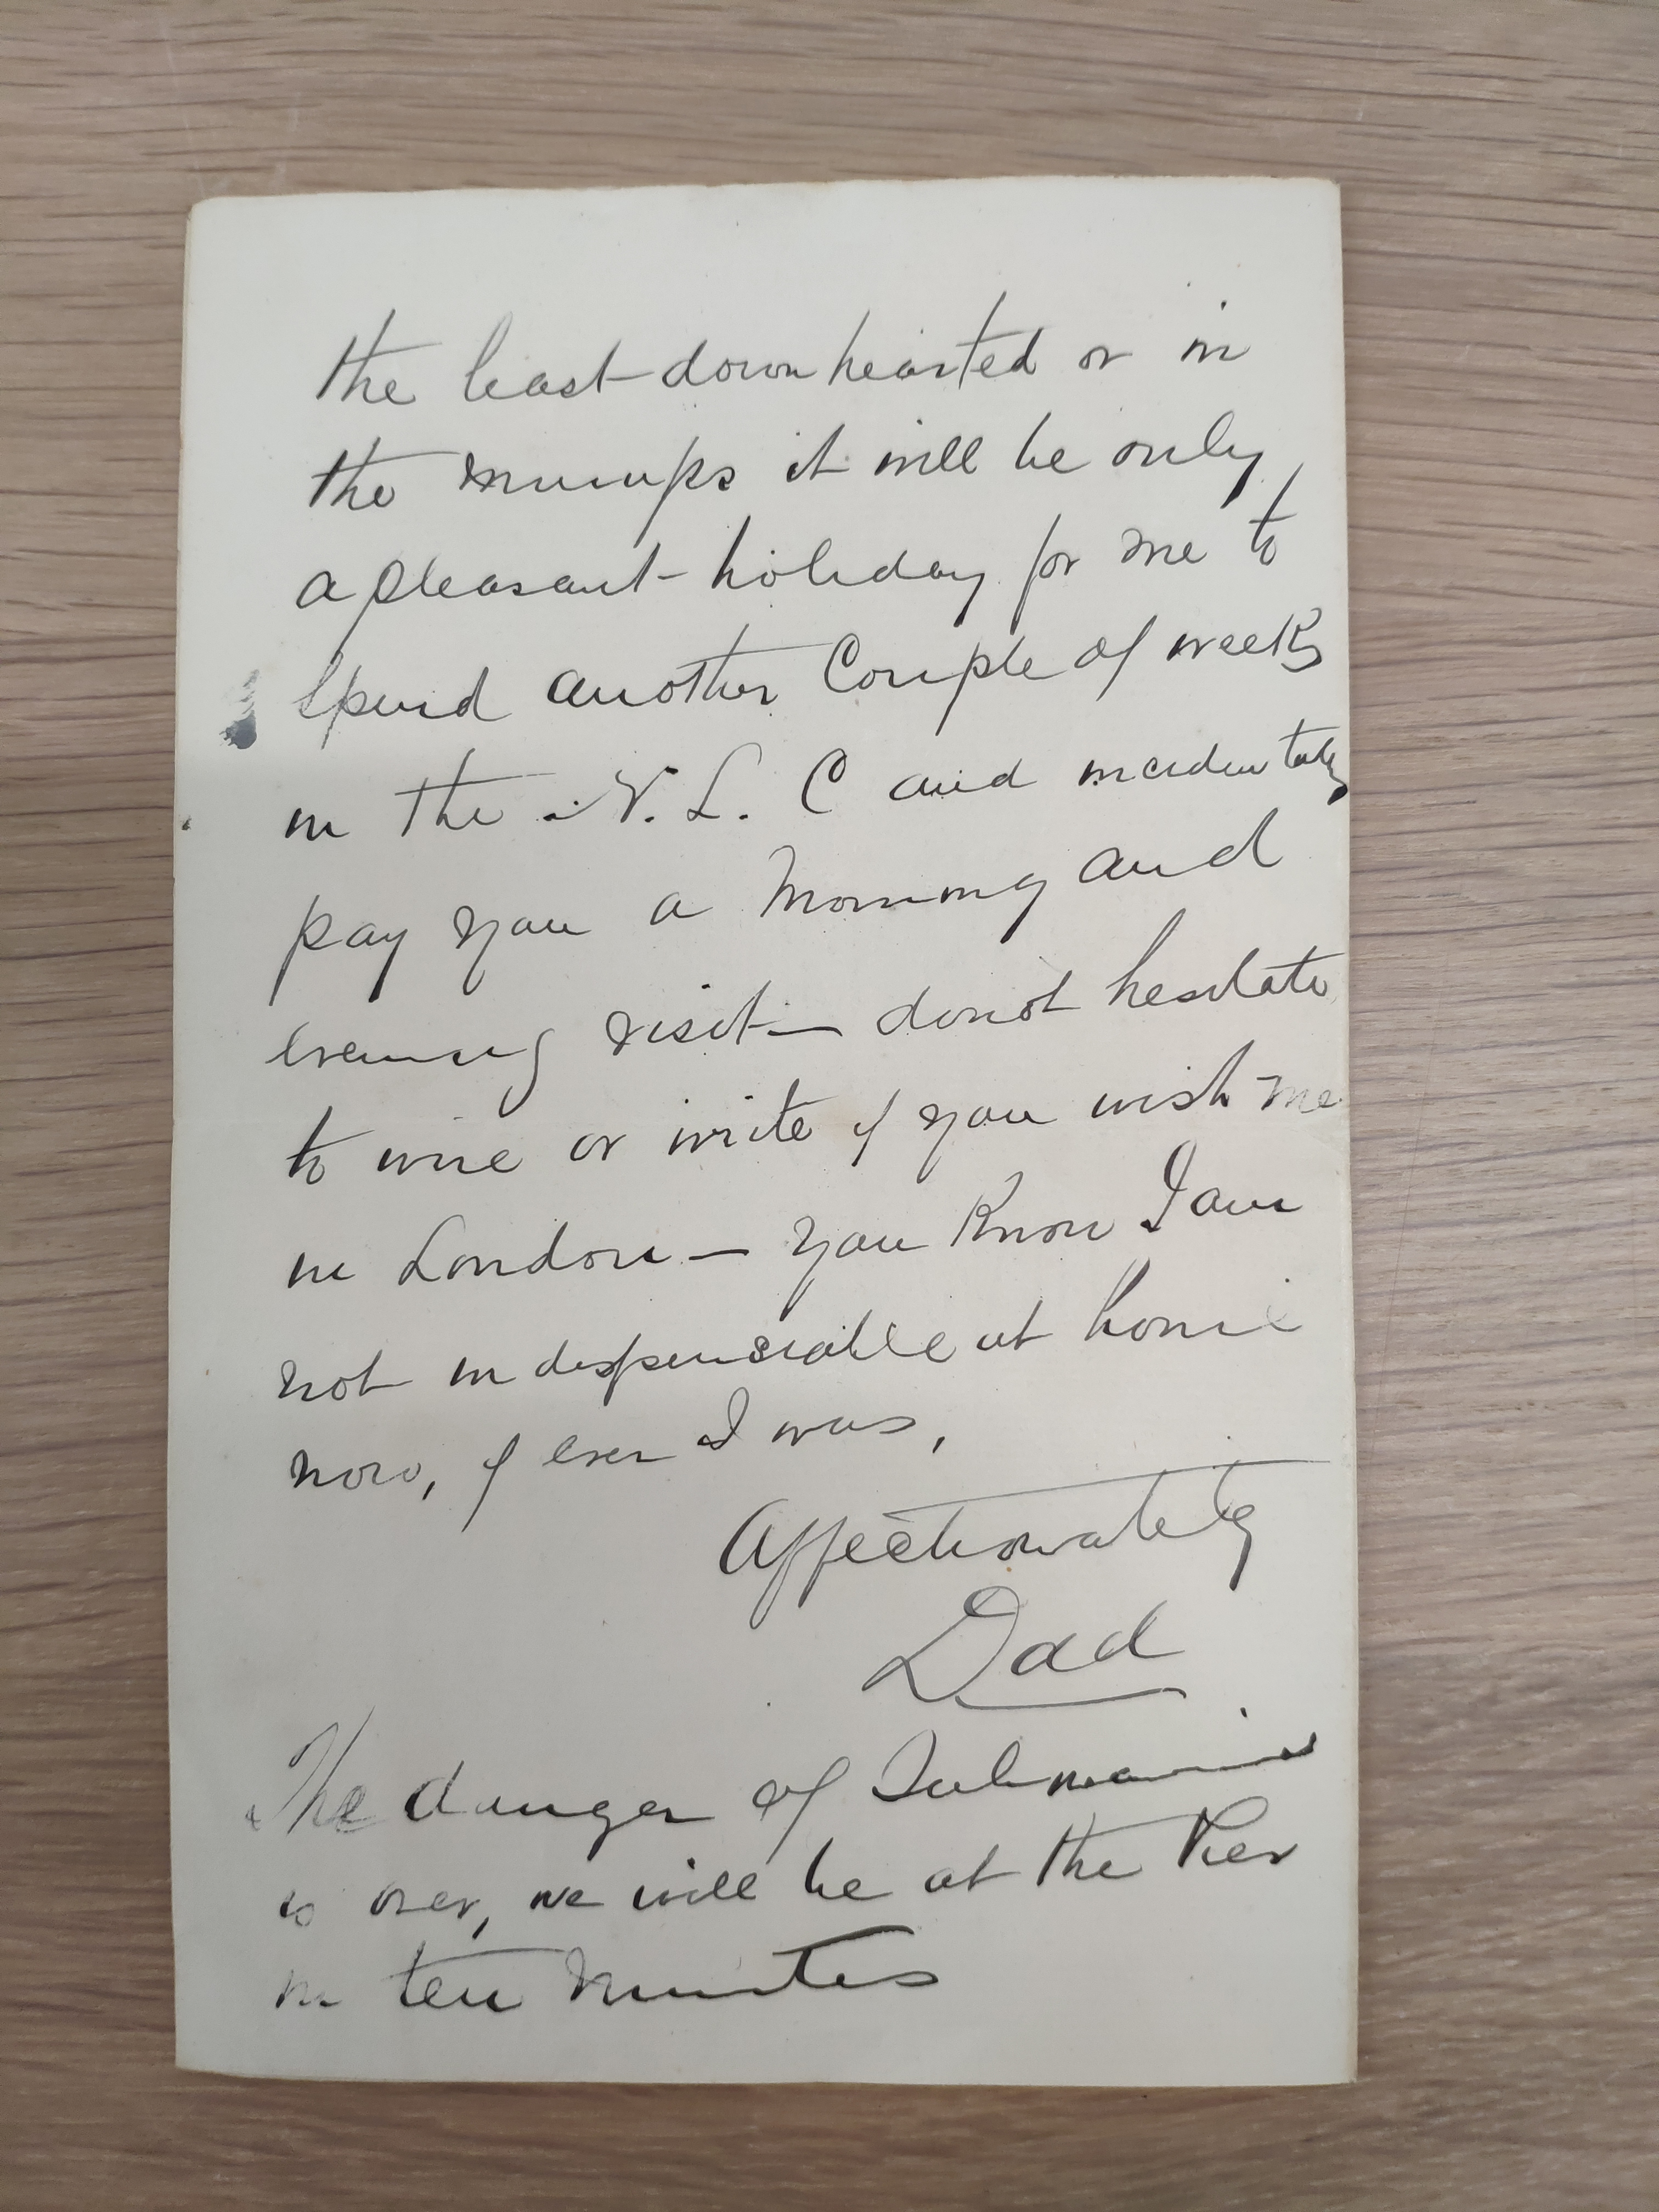 the least downhearted or in
the mumps it will be only
a pleasant holiday for me to
spend another Couple of weeks
in the N. L. C and incidentaly
pay you a morning and
evening visit — do not hesitate
to wire or write if you wish me
in London — you know I am
not indespensiable at home
now, if ever I was,
Affectionately
Dad
The danger of Submarines
is over, we will be at the Pier
in ten minutes